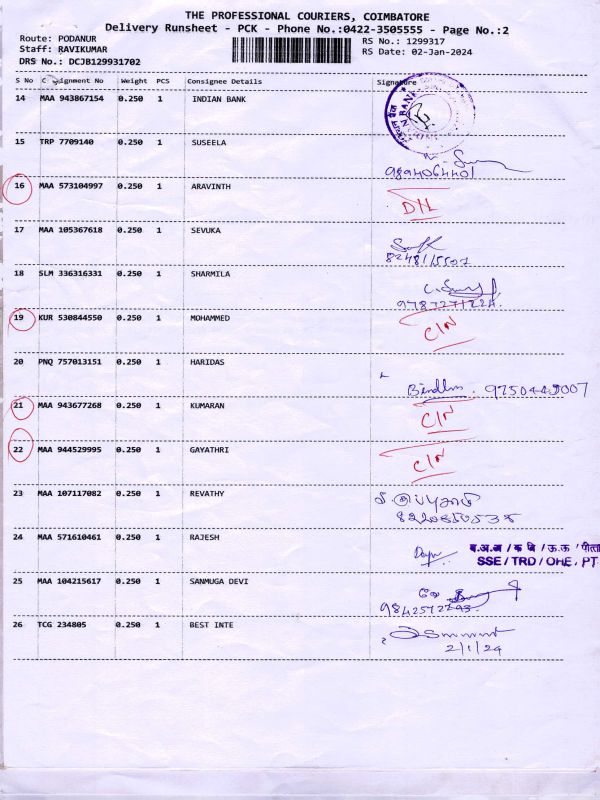 THE PROFESSIONAL COURIERS, COIMBATORE
Delivery Runsheet - PCK - Phone No.:0422-3505555 - Page No.:2
Route: PODANUR
RS No.: 1299317
Staff: RAVIKUMAR
RS Date: 02-Jan-2024
DRS No.: DCJB129931702
S No C signment No Weight PCS Consignee Details Signature
14 MAA 943867154 0.250 1 INDIAN BANK
15 TRP 7709140 0.250 1 SUSEELA
9894064401
16 MAA 573104997 0.250 1 ARAVINTH
D/L
17 MAA 105367618 0.250 1 SEVUKA
18 SLM 336316331 0.250 1 SHARMILA
19 KUR 530844550 0.250 1 MOHAMMED
C/N
20 PNQ 757013151 0.250 1 HARIDAS
21 MAA 943677268 0.250 1 KUMARAN
C/N
22 MAA 944529995 0.250 1 GAYATHRI
C/N
23 MAA 107117082 0.250 1 REVATHY
24 MAA 571610461 0.250 1 RAJESH
SSE / TRD / OHE, PT
25 MAA 104215617 0.250 1 SANMUGA DEVI
26 TCG 234805 0.250 1 BEST INTE
2/1/24